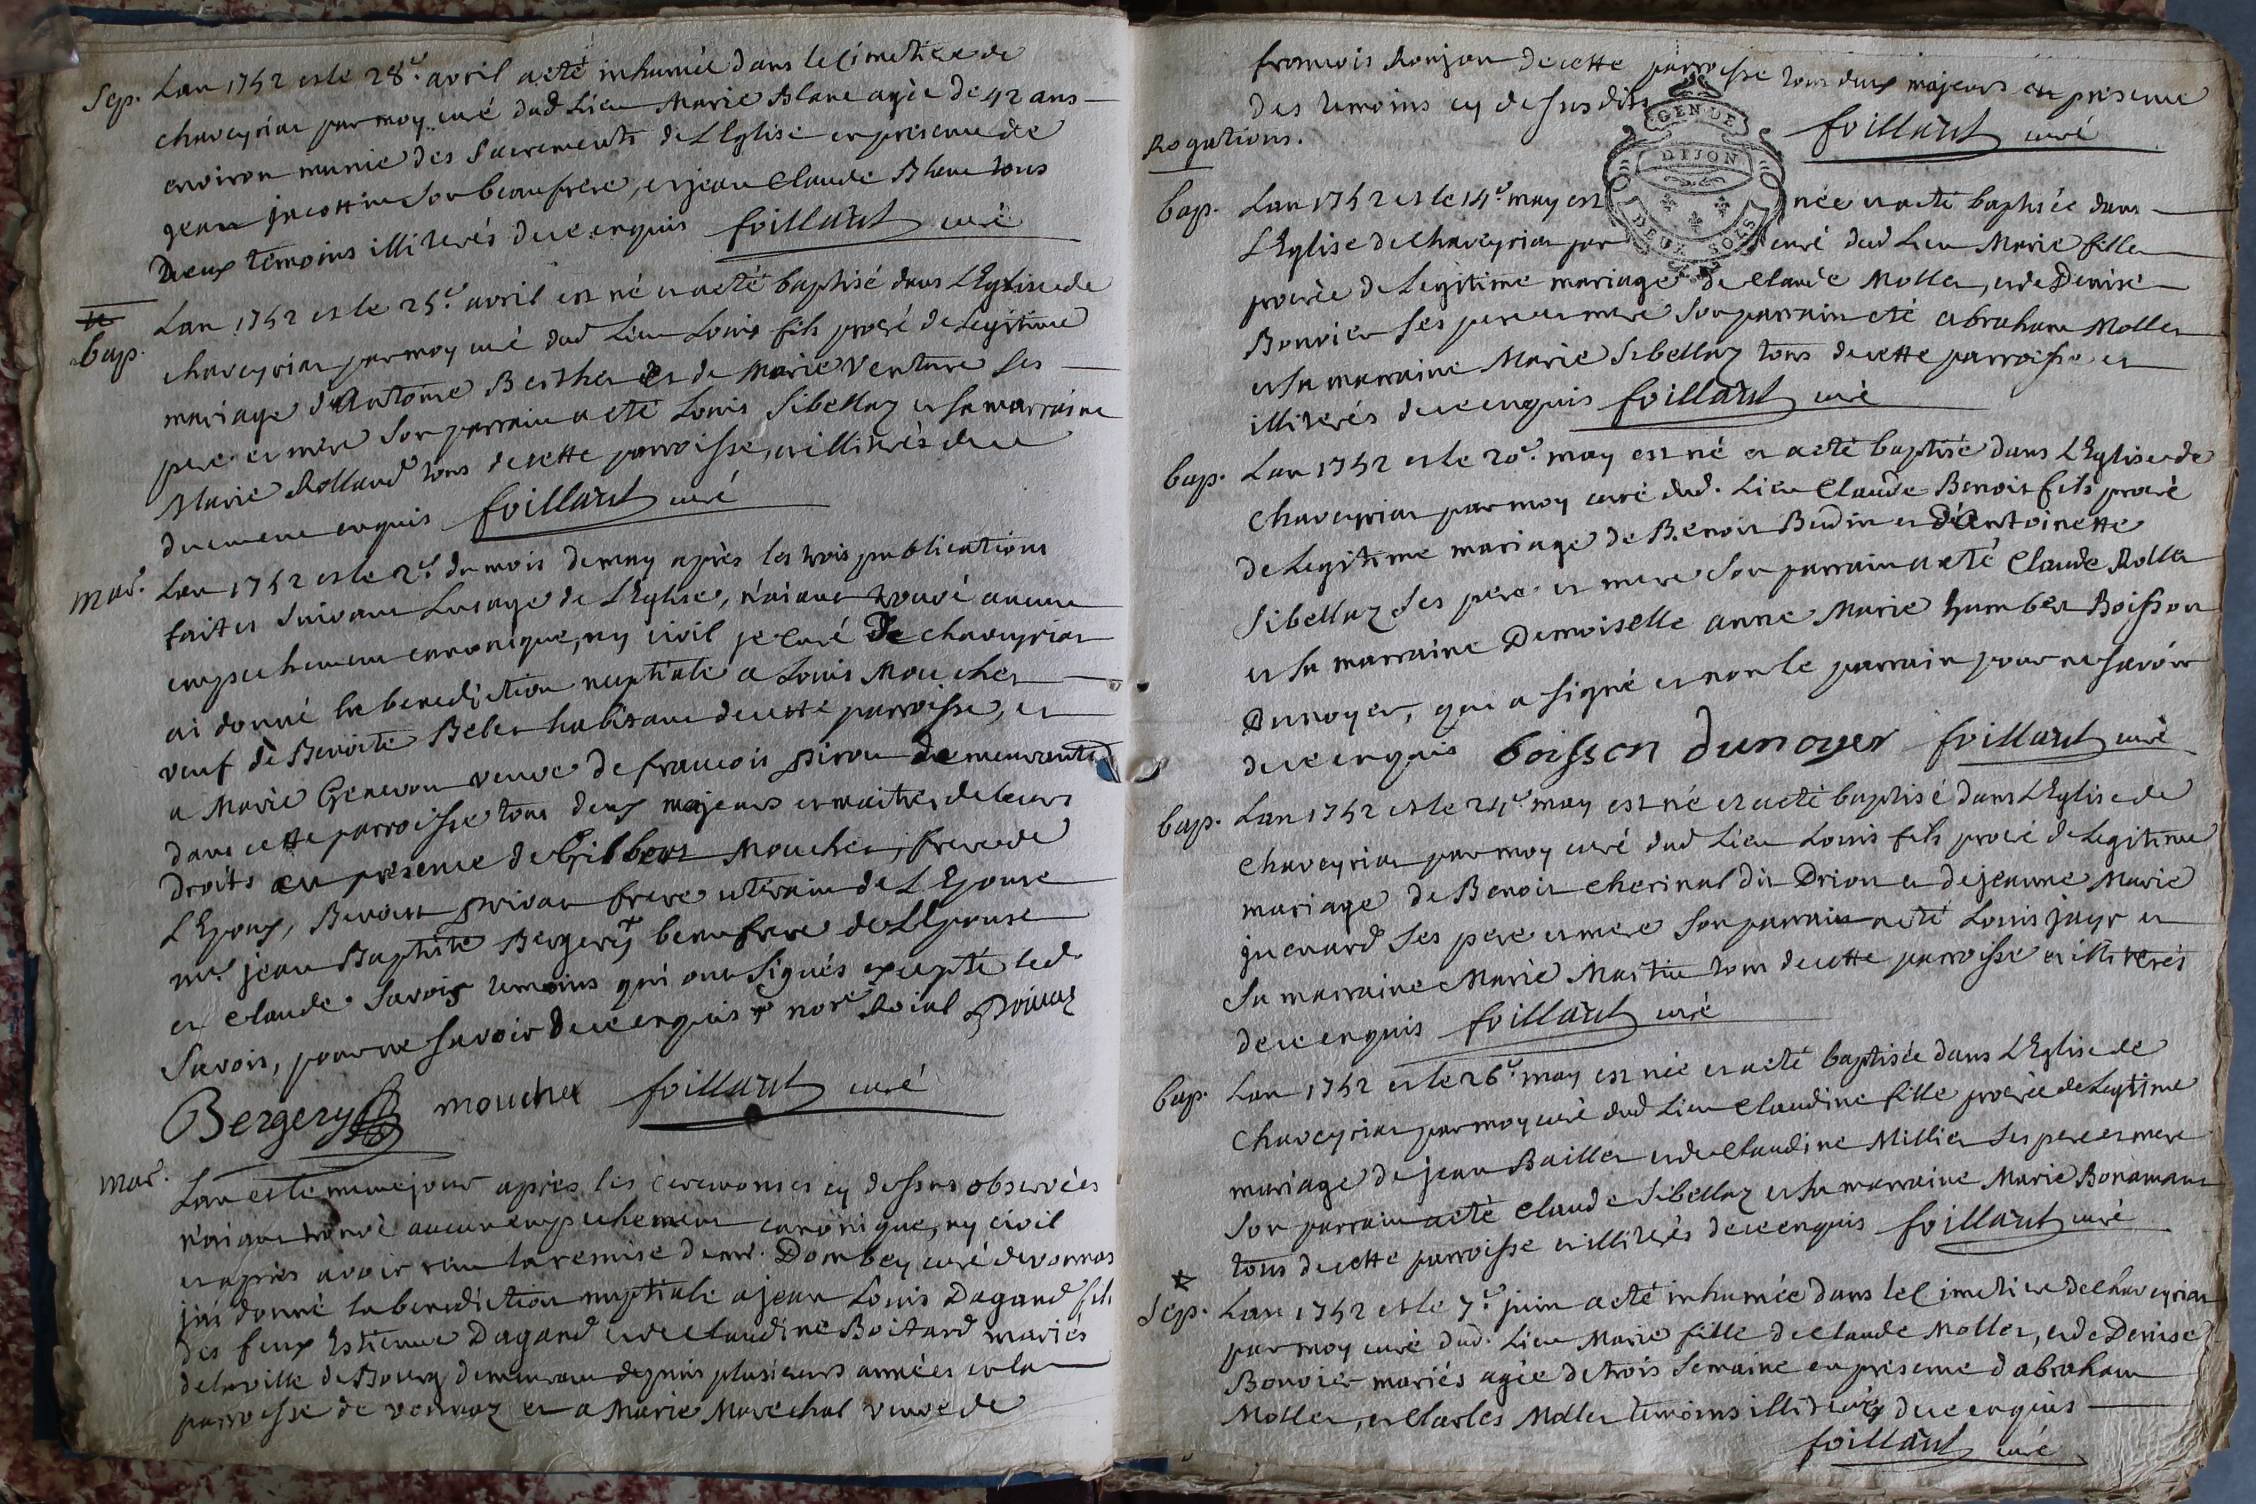 Sep. Lan 1752 et le 28e. avril a eté inhumée dans le Cimetiere de
chaveyriat par moy curé dud Lieu Marie Blanc agée de 42 ans
environ munie des Sacrements de L'Eglise en presence de
jean jacottin son beaufrere, et jean Claude Blanc tous
Deux témoins illiterés de ce enquis foillard curé
bap. Lan 1752 et le 25e. avril est né et a eté baptisé dans L'Eglise de
chaveyriat par moy curé dud Lieu Louis fils procréé de Legitime
mariage d'Antoine Berthet et de Marie Venture ses
pere et mere son parrain a eté Louis Sibellaz et sa marraine
Marie Rolland tous de cette parroisse, et illiterés de ce
duement enquis foillard curé
mar. Lan 1752 et le 2e. du mois de may après les trois publications
faites suivant Lusage de L'Eglise, n'aiant trouvé aucun
empechement canonique, ny civil je Curé De chaveyriat
ai donné la benediction nuptiale a Louis Moucher
veuf de Benoite Belet habitant de cette parroisse, et
a Marie Genevon veuve de francois Pirou demeurante
dans cette parroisse tous deux majeurs et maitres de leurs
Droits en presence de Gilbert Moucher, frere de
L'Epoux, Benoit Privat frere uterain de L'Epouse
mr. jean Baptiste Bergery beaufrere de L'Epouse
et Claude Savoix temoins qui ont signés excepté led.
Savoix, pour ne savoir de ce enquis nore. Roial Privat
Bergery moucher foillard curé
mar. Lan et le meme jour après les ceremonies cy dessus observées
n'aiant trouvé aucun empechement canonique, ny civil
et après avoir veu la remise de mr. Dombey curé de vonnas
j'ai donné la benediction nuptiale a jean Louis Dagand fils
des feux Estienne Dagand et de Claudine Boitard mariés
de la ville de Bourg demeurant depuis plusieurs années en la
parroisse de vonnaz et a Marie Marechal veuve de
francois Ronjon de cette parroisse tous deux majeurs en presence
des temoins cy dessus dits foillard curé
Rogations.
GEN DE
DIJON
DEUX SOLS
bap. Lan 1752 et le 14e. may est née et a eté baptisée dans
L'Eglise de Chaveyriat par curé dud Lieu Marie fille
procréé de Legitime mariage de Claude Mollet, et de Denise
Bouvier ses pere et mere son parrain eté abraham Mollet
et sa marraine Marie Sibellaz tous de cette parroisse et
illiterés de ce enquis foillard curé
bap. Lan 1752 et le 20e. may est né et a eté baptisé dans L'Eglise de
Chaveyriat par moy curé dud. Lieu Claude Benoit fils procréé
de Legitime mariage de Benoit Budin et d'Antoinette
Sibellaz ses pere et mere son parrain a eté Claude Rollet
et sa marraine Demoiselle anne Marie humbert Boisson
Dunoyer, qui a signé et non le parrain pour ne savoir
de ce enquis boisson dunoyer foillard curé
bap. Lan 1752 et le 24e. may est né et a eté baptisé dans L'Eglise de
chaveyriat par moy curé dud Lieu Louis fils procréé de Legitime
mariage de Benoit Cherinal dit Drion et de jeanne Marie
juenard ses pere et mere son parrain a eté Louis jayr et
sa marraine Marie Martin tous de cette parroisse et illiterés
de ce enquis foillard curé
bap. Lan 1752 et le 26e. may est née et a eté baptisée dans L'Eglise de
Chaveyriat par moy curé dud Lieu Claudine fille procréé de Legitime
mariage de jean Baillet et de Claudine Millier ses pere et mere
son parrain a eté Claude Sibellaz et sa marraine Marie Bonamant
tous de cette parroisse et illiterés de ce enquis foillard curé
Sep. Lan 1752 et le 7e. juin a eté inhumée dans le Cimetiere de chaveyriat
par moy curé dud. Lieu Marie fille de Claude Mollet, et de Denise
Bouvier mariés agée de trois semaine en presence d'abraham
Mollet, et Charles Mollet temoins illiterés de ce enquis
foillard curé